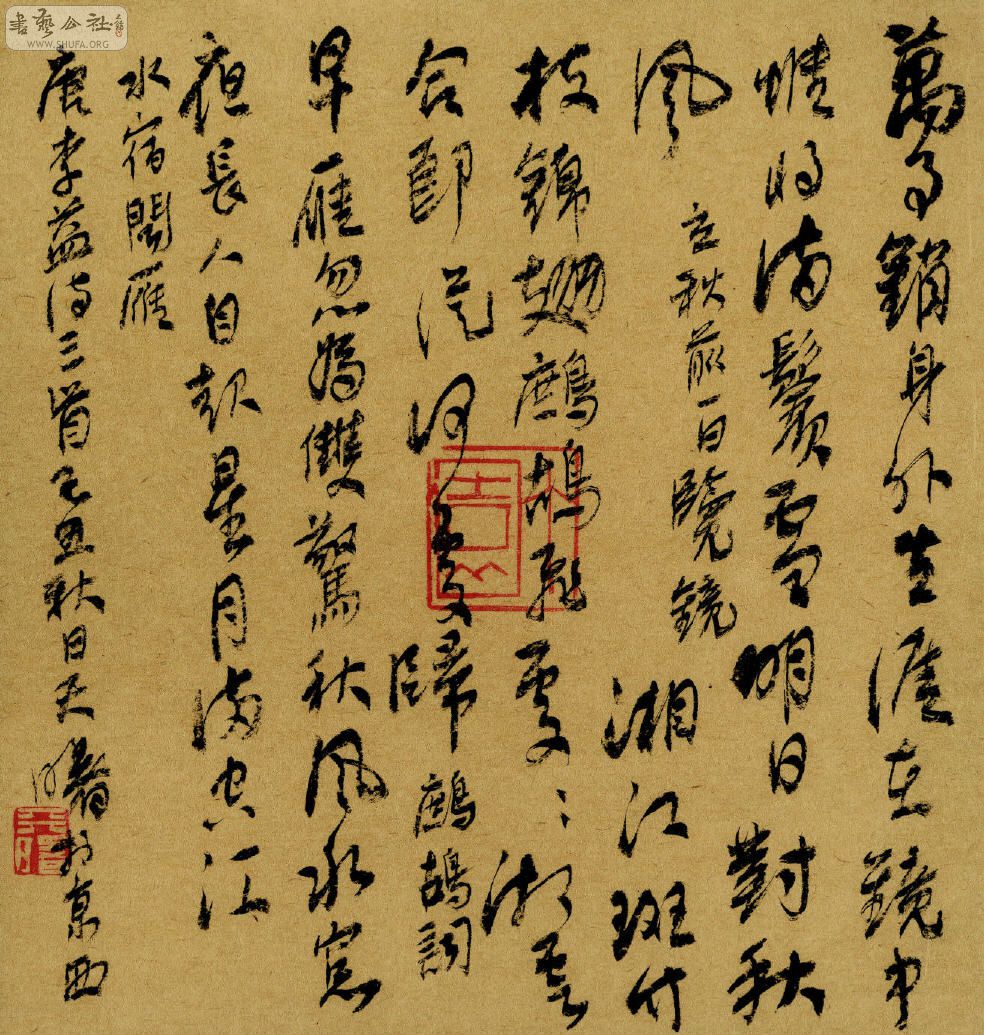 書藝公社
WWW.SHUFA.ORG
萬事銷身外生涯在鏡中
惟將滿鬢雪明日對秋
風 立秋前一日覽鏡 湘江斑竹
枝錦翅鷓鴣飛處〻湘雲
合郎從何處歸 鷓鴣詞
早雁忽為雙驚秋風水窗
夜長人自起星月滿空江
水宿聞雁
唐李益詩三首己丑秋日天曙於京西